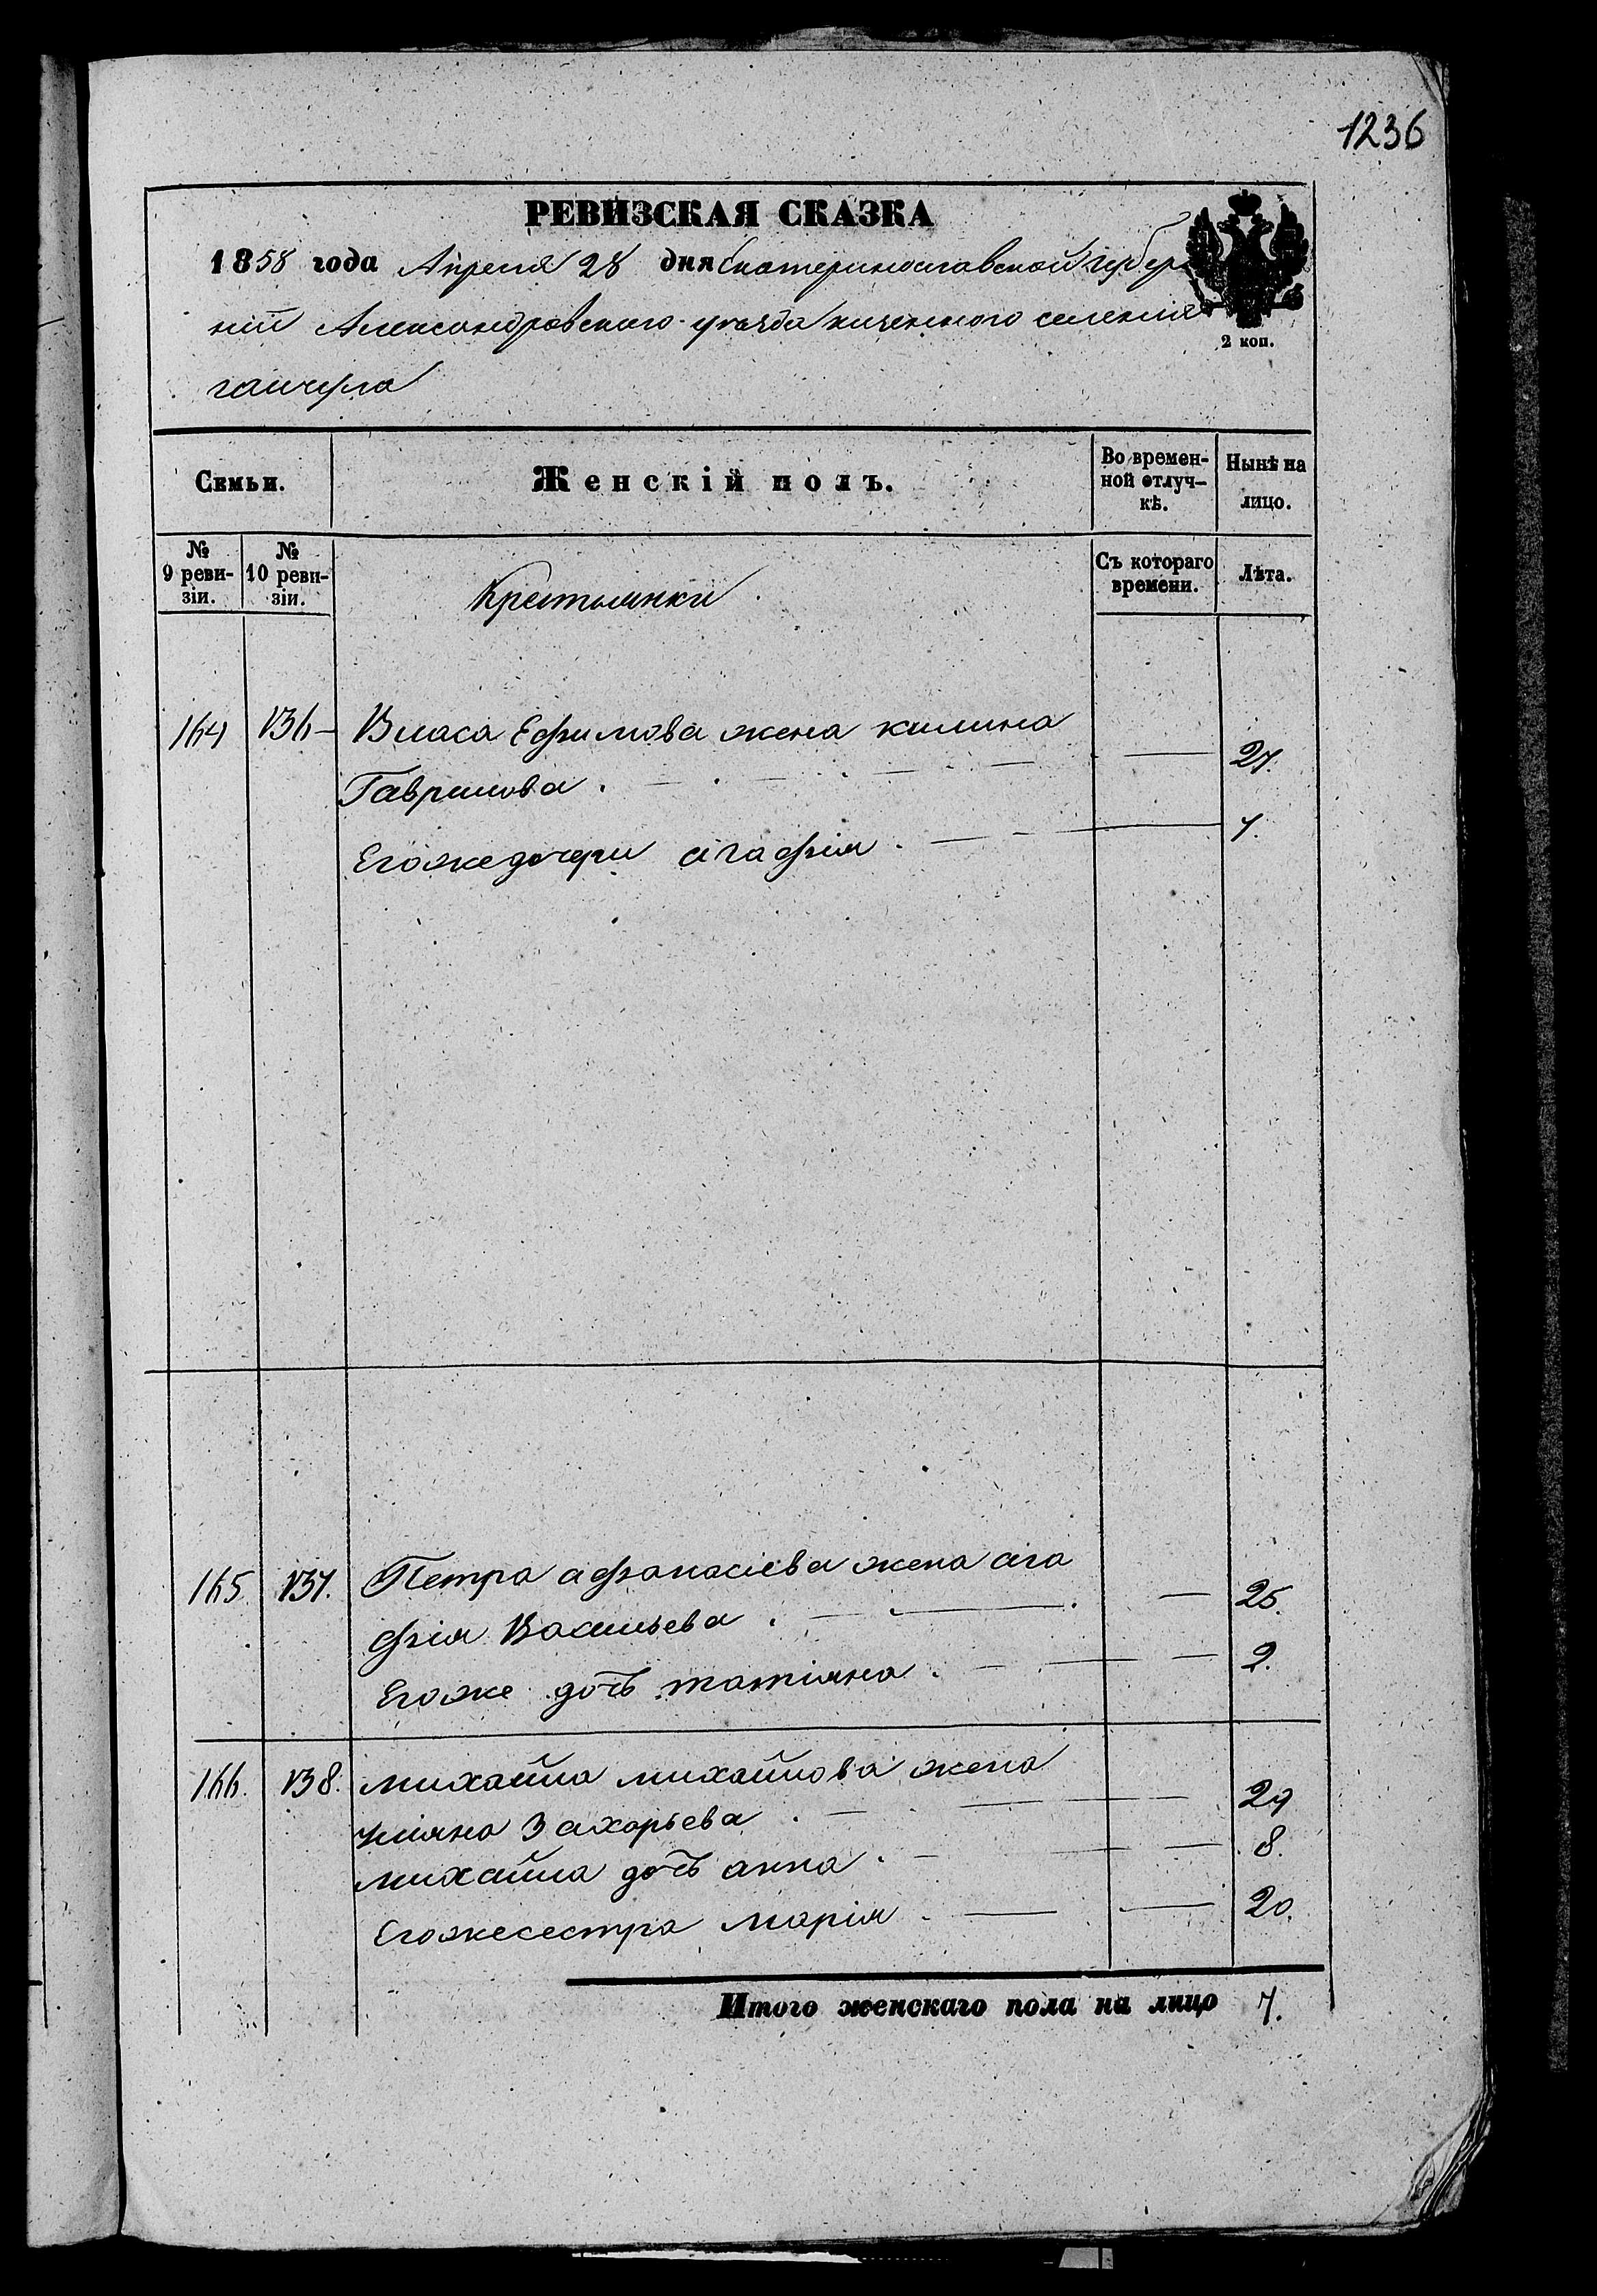 1236
РЕВИЗСКАЯ СКАЗКА
1858 года Апреля 28 дня Екатеринославской губер
ніи Александровскаго уезда казенного селенія
гайчула
2 коп.
Семьи. Женскій полъ. Во времен-
ной отлуч-
кѣ. Нынѣ на
лицо.
№
9 реви-
зіи. №
10 реви-
зіи. Крестьянки Съ котораго
времени. Лѣта.
164 136 Власа Ефимова жена килина
Гаврилова 27.
Егоже дочери агафія 7.
165 137. Петра афанасіева жена ага
фія Васильева 25.
Егоже дочь татіяна 2.
166. 138. михайла михайлова жена
уліяна Захарьева 29
михайла дочь анна 8.
Егоже сестра марія 20.
Итого женскаго пола на лицо 7.